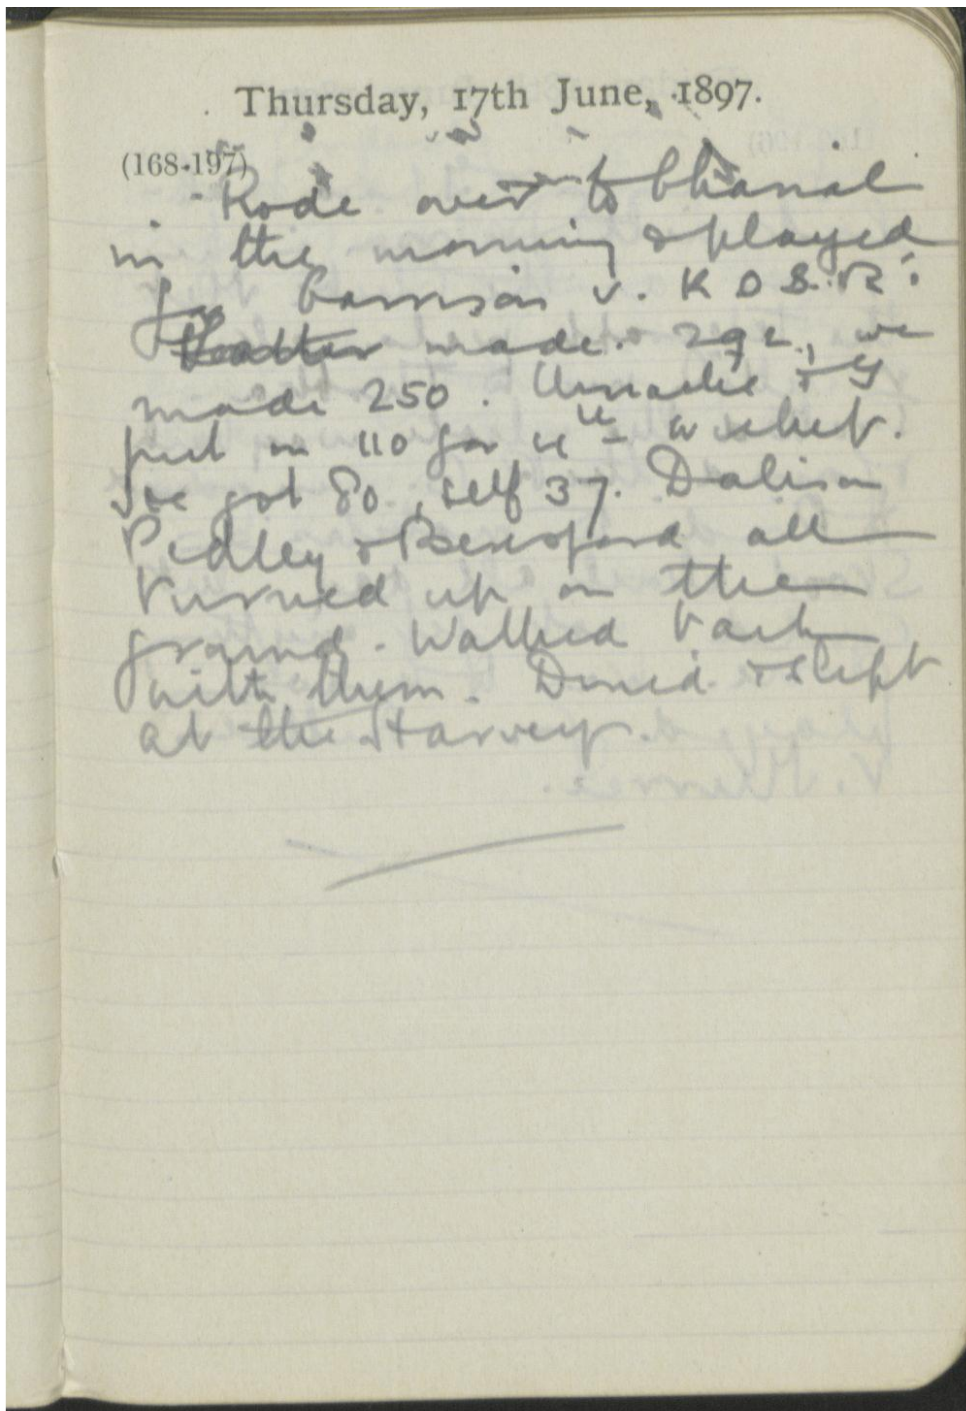 Thursday, 17th June, 1897.
(168-197)
Rode over to Chamal
in the morning & played
for Garrison v. K O S B's
made 292, we
made 250. & I
put on 110 for 4th wicket.
He got 80, self 37. Dalison
Pedley & Beresford all
turned up on the
ground. Walked back
with them. Dined & slept
at the Harvey.